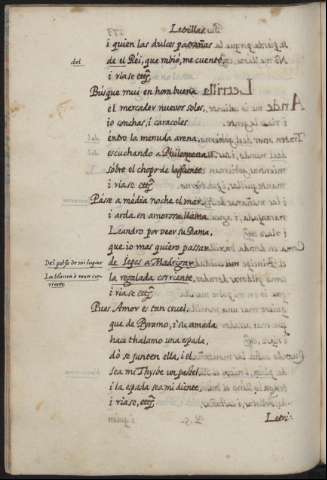 Letrillas
i quien las dulces patrañas
del
de el Rei, que rabió, me cuente,
i riase etc̃.
Busque mui en hora buena
el mercader nuevos soles,
io conchas, i caracoles
entre la menuda arena,
escuchando a Philomena
sobre el chopo de la fuente
i riase etc̃.
Passe a média noche el mar,
i arda en amorosa llama
Leandro por veer su Dama,
que io mas quiero passar
Del golfo de mi lagar
de Iepes a Madrigar
La blanca ò roxa corriente
la regalada corriente,
i riase etc̃.
Pues Amor es tan cruel,
que de Pyramo, i su amada
hace thalamo una espada,
dò se junten ella, i él
sea mi Thysbe un pastel,
i la espada sea mi diente,
i riase, etc̃.
Letri-